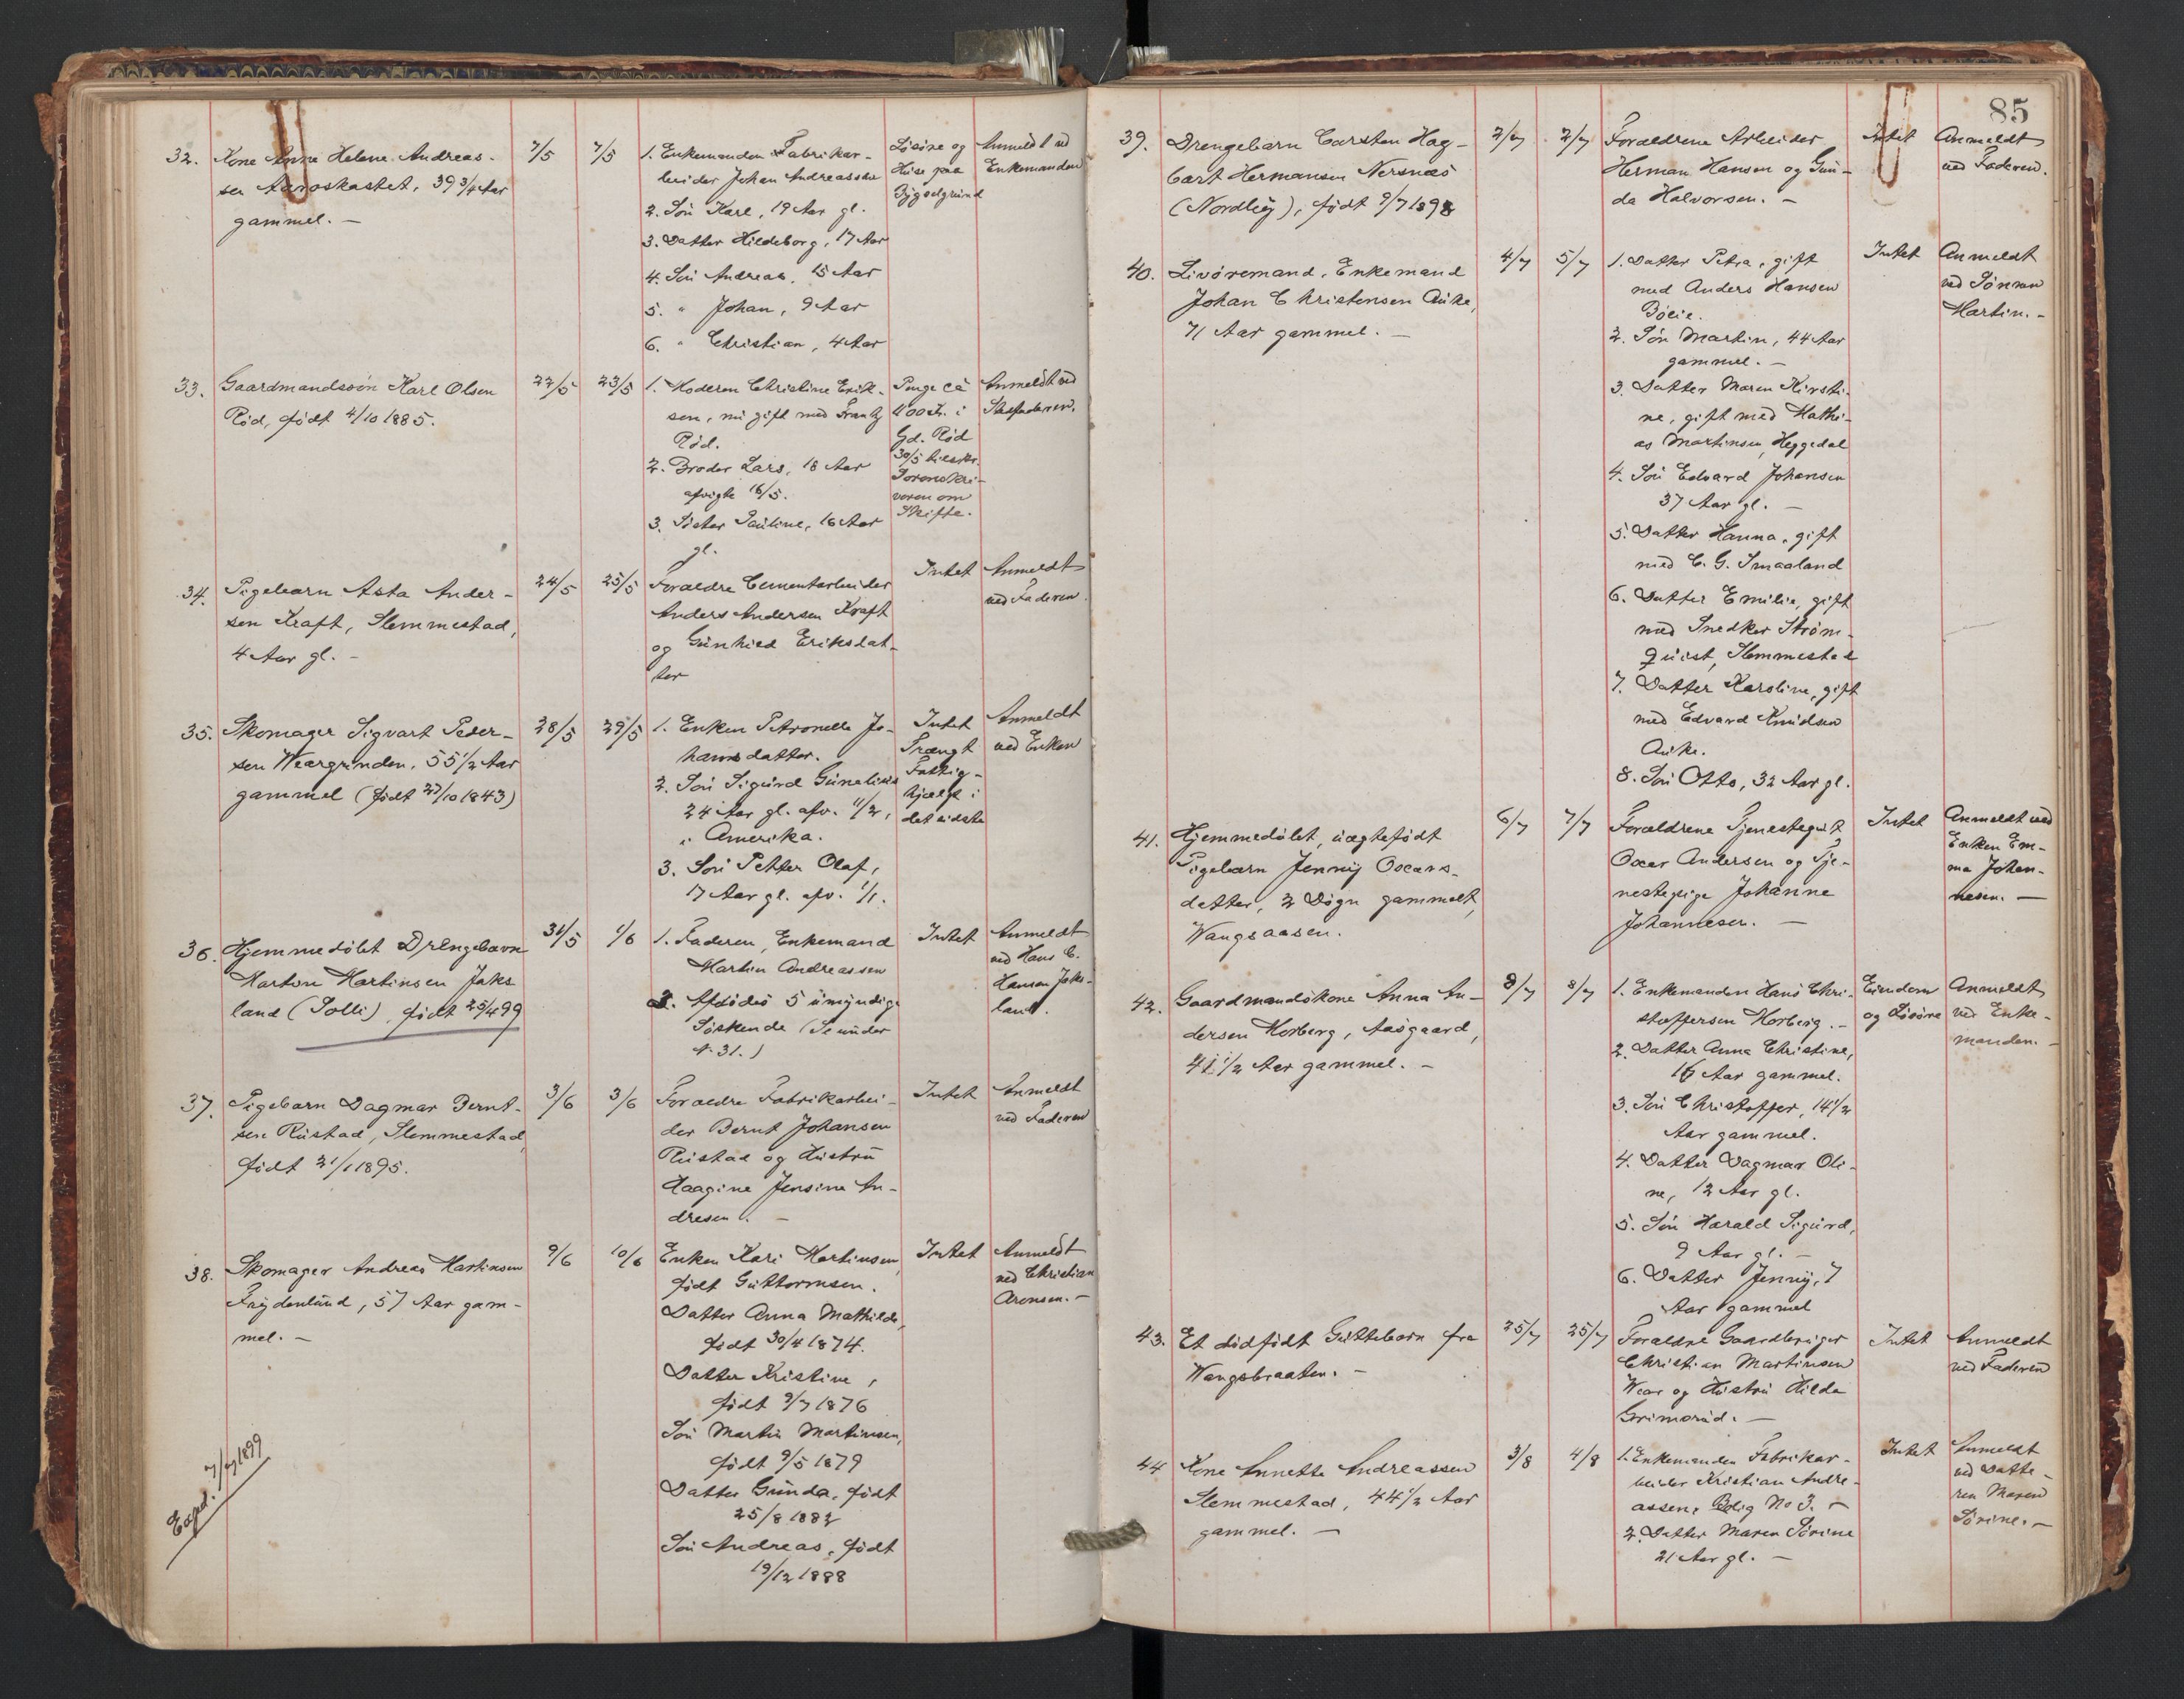 32. Kone Anne Helene Andreas-
sen Aaroskastet, 39 3/4 Aar
gammel. —
7/5
7/5
1. Enkemanden Fabrikar-
beider Johan Andreassen
2. Søn Karl, 19 Aar gl.
3. Datter Hildeborg, 17 Aar
4. Søn Andreas, 15 Aar
5. " Johan, 9 Aar
6. " Christian, 4 Aar
Løsøre og
Huse paa
Bygselgrund
Anmeldt ved
Enkemanden
33. Gaardmandssøn Karl Olsen
Rød, født 4/10 1885.
22/5
23/5
1. Moderen Christine Erik-
sen, nu gift med Frantz
Rød.
2. Broder Lars, 18 Aar
afvigte 16/5.
3. Søster Pauline, 16 Aar
gl.
Penge ca
1100 Kr. i
Gd. Rød
30/5 tilskr.
Sorenskri-
veren om
Skifte.
Anmeldt ved
Stedfaderen.
34. Pigebarn Asta Ander-
sen Kraft, Slemmestad,
4 Aar gl. —
24/5
25/5
Forældre Cementarbeider
Anders Andersen Kraft
og Gunhild Eriksdat-
ter
Intet
Anmeldt
ved Faderen.
35. Skomager Sigvart Peder-
sen Weargrinden, 55 1/2 Aar
gammel (født 27/10 1843)
28/5
29/5
1. Enken Petronelle Jo-
hannsdatter.
2. Søn Sigurd
24 Aar gl. afv. 11/2,
i Amerika.
3. Søn Petter Olaf,
17 Aar gl. afv. 1/1.
Intet
Trængt
Fattig-
hjælp i
det sidste
Anmeldt
ved Enken
36. Hjemmedøbt Drengebarn
Marton Martinsen Jaks
land (Solli), født 25/4 99
31/5
1/6
1. Faderen, Enkemand
Martin Andreassen
2. Afdødes 5 umyndige
Søskende (Se under
N. 31.)
Intet
Anmeldt
ved Hans C.
Hansen Jaks-
land.
37. Pigebarn Dagmar Bernt-
sen Rustad, Slemmestad,
født 21/1 1895.
3/6
3/6
Forældre Fabrikarbei-
der Bernt Johansen
Rustad og Hustru
Haagine Jensine An-
dresen. —
Intet
Anmeldt
ved Faderen
38. Skomager Andreas Martinsen
Frydenlund, 57 Aar gam-
mel. —
9/6
10/6
Enken Kari Martinsen,
født Guttormsen.
Datter Anna Mathilde,
født 30/4 1874.
Datter Kristine,
født 9/7 1876
Søn Martin Martinsen,
født 9/5 1879
Datter Gunda, født
25/8 1882
Søn Andreas, født
19/12 1888
Intet
Anmeldt
ved Christian
Arensen. —
Exped. 7/7 1899
85
39. Drengebarn Carsten Hag-
bart Hermansen Nersnæs
(Nordby), født 9/7 1898
2/7
2/7
Forældrene Arbeider
Herman Hansen og Gun-
da Halvorsen. —
Intet
Anmeldt
ved Faderen.
40. Livøremand, Enkemand
Johan Christensen Auke,
71 Aar gammel. —
4/7
5/7
1. Datter Petra, gift
med Anders Hansen
Bøeie.
2. Søn Martin, 44 Aar
gammel. —
3. Datter Maren Kirsti-
ne, gift med Mathi-
as Martinsen, Heggedal
4. Søn Edvard Johansen
37 Aar gl. —
5. Datter Hanna, gift
med C. G. Smaaland
6. Datter Emilie, gift
med Snedker Strøm-
quist, Slemmestad
7. Datter Karoline, gift
med Edvard Knudsen
Auke.
8. Søn Otto, 32 Aar gl.
Intet
Anmeldt
ved Sønnen
Martin. —
41. Hjemmedøbt, uægtefødt
Pigebarn Jenny Oscars-
datter, 2 Døgn gammelt,
Wangsaasen.
6/7
7/7
Forældrene Tjenestegut
Oscar Andersen og Tje-
nestepige Johanne
Johannesen. —
Intet
Anmeldt ved
Enken Em-
ma Johan-
nesen. —
42. Gaardmandskone Anna An-
dersen Morberg, Aasgaard,
41 1/2 Aar gammel. —
8/7
8/7
1. Enkemanden Hans Chri-
stoffersen Morberg. —
2. Datter Anna Christine,
16 Aar gammel.
3. Søn Christoffer, 14 1/2
Aar gammel.
4. Datter Dagmar Oli-
ne, 12 Aar gl.
5. Søn Harald Sigurd,
9 Aar gl. —
6. Datter Jenny, 7
Aar gammel
Eiendom
og Løsøre
Anmeldt
ved Enke-
manden. —
43. Et dødfødt Guttebarn fra
Wangsbraaten. —
25/7
25/7
Forældre Gaardbruger
Christian Martinsen
Wear og Hustru Hilda
Grimsrud. —
Intet
Anmeldt
ved Faderen
44 Kone Annette Andreassen
Slemmestad, 44 1/2 Aar
gammel. —
3/8
4/8
1. Enkemanden Fabrikar-
beider Kristian Andre-
assen, Bolig No 3. —
2. Datter Maren Sørine
21 Aar gl. —
Intet
Anmeldt
ved Datte-
ren Maren
Sørine. —